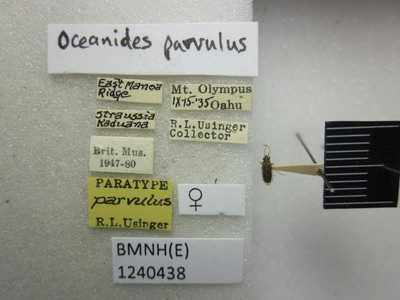 Oceanides parvulus
East Manoa
Ridge
Mt. Olympus
IX-15-'35 Oahu
Straussia
Kaduana
R.L.Usinger
Collector
Brit. Mus.
1947-80
PARATYPE
parvulus
R.L.Usinger
♀
BMNH(E)
1240438